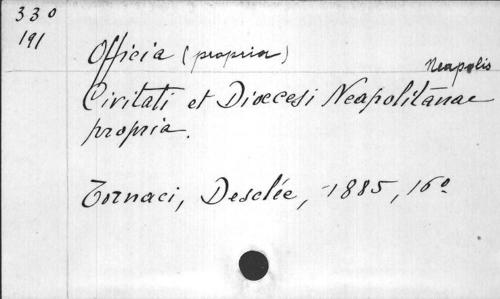 330
191
Officia (propria)
Neapolis
Civitati et Dioecesi Neapolitanae
propria.
Tornaci, Desclée, 1885, 16º